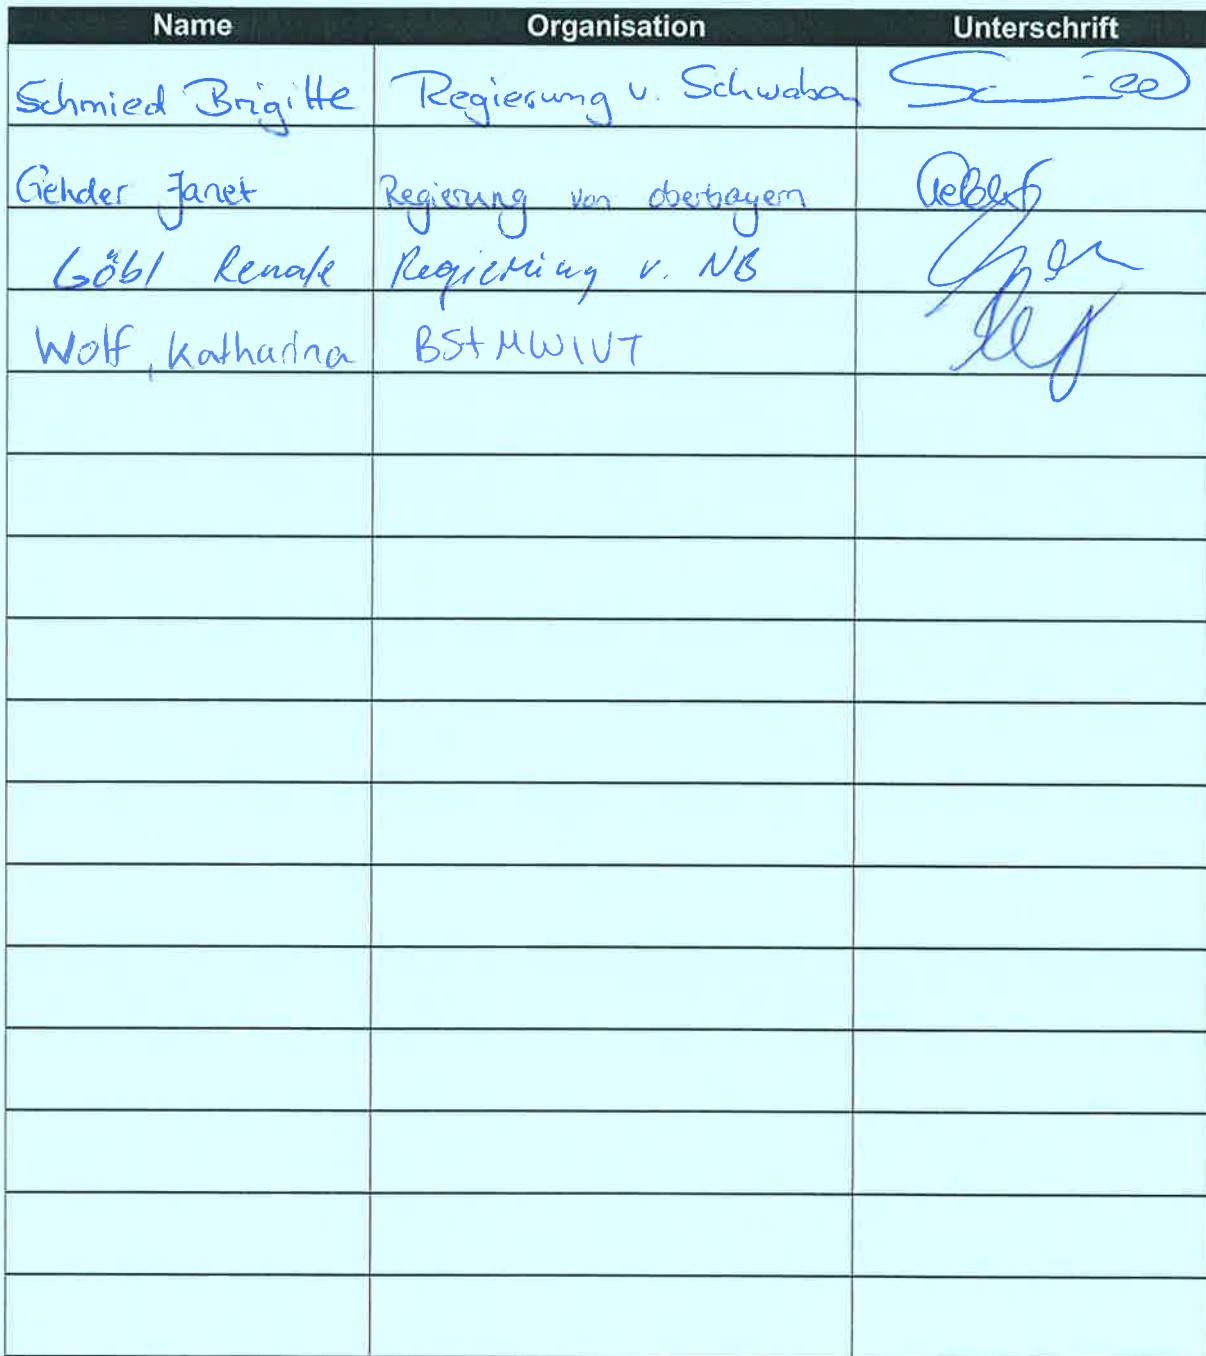 Name Organisation Unterschrift
Schmied Brigitte Regierung v. Schwaben
Janet Regierung von Oberbayern
Göbl Renate Regierung v. NB
Wolf, Katharina BStMWIVT